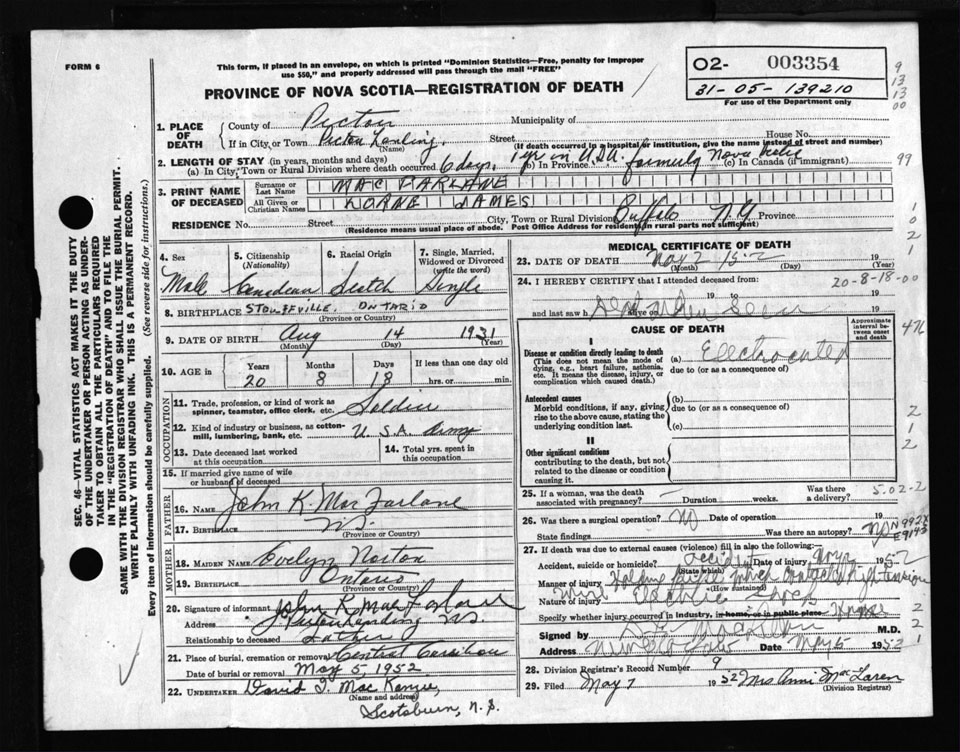 FORM 6
This form, if placed in an envelope, on which is printed "Dominion Statistics—Free, penalty for improper
use $50," and properly addressed will pass through the mail "FREE"
O2- 003354
31-05-139210
For use of the Department only
9
13
13
00
PROVINCE OF NOVA SCOTIA—REGISTRATION OF DEATH
1. PLACE OF DEATH
County of Pictou Municipality of
If in City, or Town Pictou Landing Street House No.
(Name) (If death occurred in a hospital or institution, give the name instead of street and number)
2. LENGTH OF STAY (in years, months and days)
(a) In City, Town or Rural Division where death occurred 6 days. 1 yr in U.S.A. (b) In Province formerly Nova Scotia (c) In Canada (if immigrant)
99
3. PRINT NAME OF DECEASED
Surname or Last Name MAC FARLANE
All Given or Christian Names LORNE JAMES
RESIDENCE No. Street City, Town or Rural Division Buffalo N.Y. Province
(Residence means usual place of abode. Post Office Address for residence in rural parts not sufficient)
1
0
2
1
4. Sex
Male
5. Citizenship (Nationality)
Canadian
6. Racial Origin
Scotch
7. Single, Married, Widowed or Divorced (write the word)
Single
8. BIRTHPLACE STOUFFVILLE, ONTARIO
(Province or Country)
9. DATE OF BIRTH Aug 14 1931
(Month) (Day) (Year)
10. AGE in
Years Months Days If less than one day old
20 8 18 hrs. or min.
OCCUPATION
11. Trade, profession, or kind of work as spinner, teamster, office clerk, etc. Soldier
12. Kind of industry or business, as cotton-mill, lumbering, bank, etc. U.S.A. Army
13. Date deceased last worked at this occupation
14. Total yrs. spent in this occupation
15. If married give name of wife or husband of deceased
FATHER
16. NAME John K. MacFarlane
17. BIRTHPLACE N.S.
(Province or Country)
MOTHER
18. MAIDEN NAME Evelyn Norton
19. BIRTHPLACE Ontario
(Province or Country)
20. Signature of informant John K MacFarlane
Address Pictou Landing N.S.
Relationship to deceased Father
21. Place of burial, cremation or removal Central Caribou
Date of burial or removal May 5, 1952
22. UNDERTAKER David I. MacKenzie
(Name and address)
Scotsburn, N.S.
MEDICAL CERTIFICATE OF DEATH
23. DATE OF DEATH May 2 1952
(Month) (Day) (Year)
24. I HEREBY CERTIFY that I attended deceased from: 20-8-18-00
19 to 19
and last saw h alive on 19
CAUSE OF DEATH
Approximate interval between onset and death
476
I
Disease or condition directly leading to death (a) Electrocuted
(This does not mean the mode of dying, e.g., heart failure, asthenia, etc. It means the disease, injury, or complication which caused death.)
due to (or as a consequence of)
Antecedent causes
Morbid conditions, if any, giving rise to the above cause, stating the underlying condition last.
(b)
due to (or as a consequence of)
(c)
2
1
2
II
Other significant conditions
contributing to the death, but not related to the disease or condition causing it.
25. If a woman, was the death associated with pregnancy? Duration weeks. Was there a delivery? 5-02-2
26. Was there surgical operation? No Date of operation 19
State findings Was there an autopsy? No
N992X
E9143
27. If death was due to external causes (violence) fill in also the following:—
Accident, suicide or homicide? Accident Date of injury 1952
(State which)
Manner of injury Holding which contacted high tension
(How sustained)
Nature of injury wire Electric Shock
Specify whether injury occurred in industry, in home, or in public place
2
Signed by M.D.
2
Address New Glasgow Date May 5 1952
1
28. Division Registrar's Record Number 9
29. Filed May 7 1952 Mrs Anni MacLaren
(Division Registrar)
SEC. 46—VITAL STATISTICS ACT MAKES IT THE DUTY
OF THE UNDERTAKER OR PERSON ACTING AS UNDER-
TAKER TO OBTAIN ALL THE PARTICULARS REQUIRED
IN THE "REGISTRATION OF DEATH" AND TO FILE THE
SAME WITH THE DIVISION REGISTRAR WHO SHALL ISSUE THE BURIAL PERMIT.
WRITE PLAINLY WITH UNFADING INK. THIS IS A PERMANENT RECORD.
Every item of information should be carefully supplied. (See reverse side for instructions.)